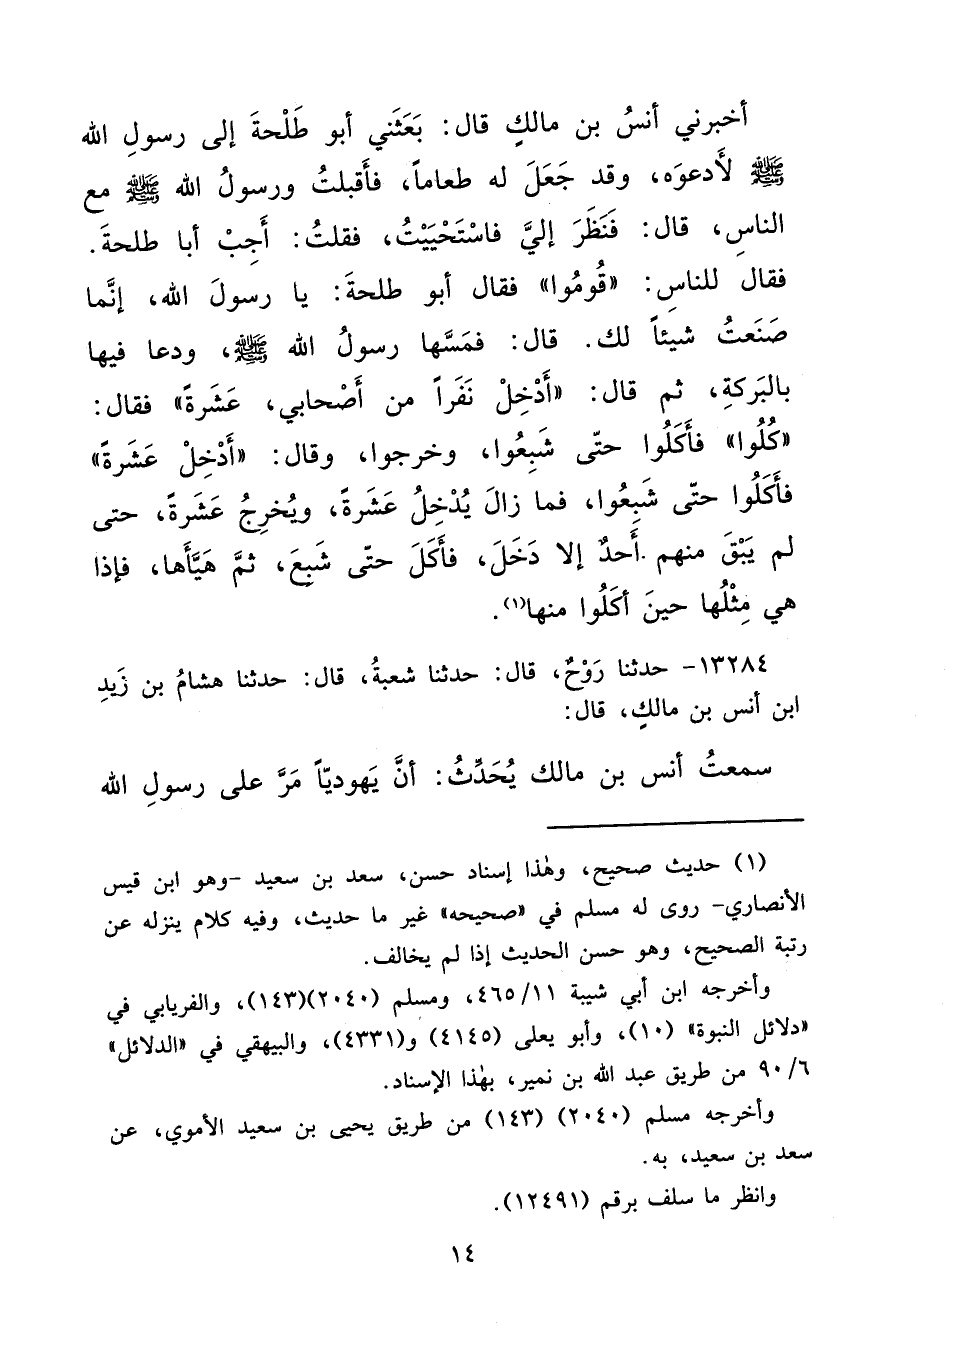 أخبرني أنسُ بن مالكٍ قال: بَعَثَني أبو طَلْحةَ إلى رسولِ الله
ﷺ لأَدعوَه، وقد جَعَلَ له طعاماً، فأَقبلتُ ورسولُ الله ﷺ مع
الناسِ، قال: فَنَظَرَ إليَّ فاسْتَحْيَيْتُ، فقلتُ: أَجِبْ أبا طلحةَ.
فقال للناسِ: «قُومُوا» فقال أبو طلحةَ: يا رسولَ الله، إنَّما
صَنَعتُ شيئاً لك. قال: فمَسَّها رسولُ الله ﷺ، ودعا فيها
بالبَركةِ، ثم قال: «أَدْخِلْ نَفَراً من أَصْحابي، عَشَرةً» فقال:
«كُلُوا» فأَكَلُوا حتّى شَبِعُوا، وخرجوا، وقال: «أَدْخِلْ عَشَرةً»
فأَكَلُوا حتّى شَبِعُوا، فما زالَ يُدْخِلُ عَشَرةً، ويُخرِجُ عَشَرةً، حتى
لم يَبْقَ منهم أَحدٌ إلا دَخَلَ، فأَكَلَ حتّى شَبِعَ، ثمَّ هَيَّأَها، فإذا
هي مِثْلُها حينَ أكَلُوا منها(١).
١٣٢٨٤- حدثنا رَوْحٌ، قال: حدثنا شعبةُ، قال: حدثنا هشامُ بن زَيدِ
ابن أنس بن مالكٍ، قال:
سمعتُ أنس بن مالك يُحَدِّثُ: أنَّ يَهوديّاً مَرَّ على رسولِ الله
(١) حديث صحيح، وهٰذا إسناد حسن، سعد بن سعيد -وهو ابن قيس
الأنصاري- روى له مسلم في «صحيحه» غير ما حديث، وفيه كلام ينزله عن
رتبة الصحيح، وهو حسن الحديث إذا لم يخالف.
وأخرجه ابن أبي شيبة ٤٦٥/١١، ومسلم (٢٠٤٠)(١٤٣)، والفريابي في
«دلائل النبوة» (١٠)، وأبو يعلى (٤١٤٥) و(٤٣٣١)، والبيهقي في «الدلائل»
٩٠/٦ من طريق عبد الله بن نمير، بهٰذا الإسناد.
وأخرجه مسلم (٢٠٤٠) (١٤٣) من طريق يحيى بن سعيد الأموي، عن
سعد بن سعيد، به.
وانظر ما سلف برقم (١٢٤٩١).
١٤